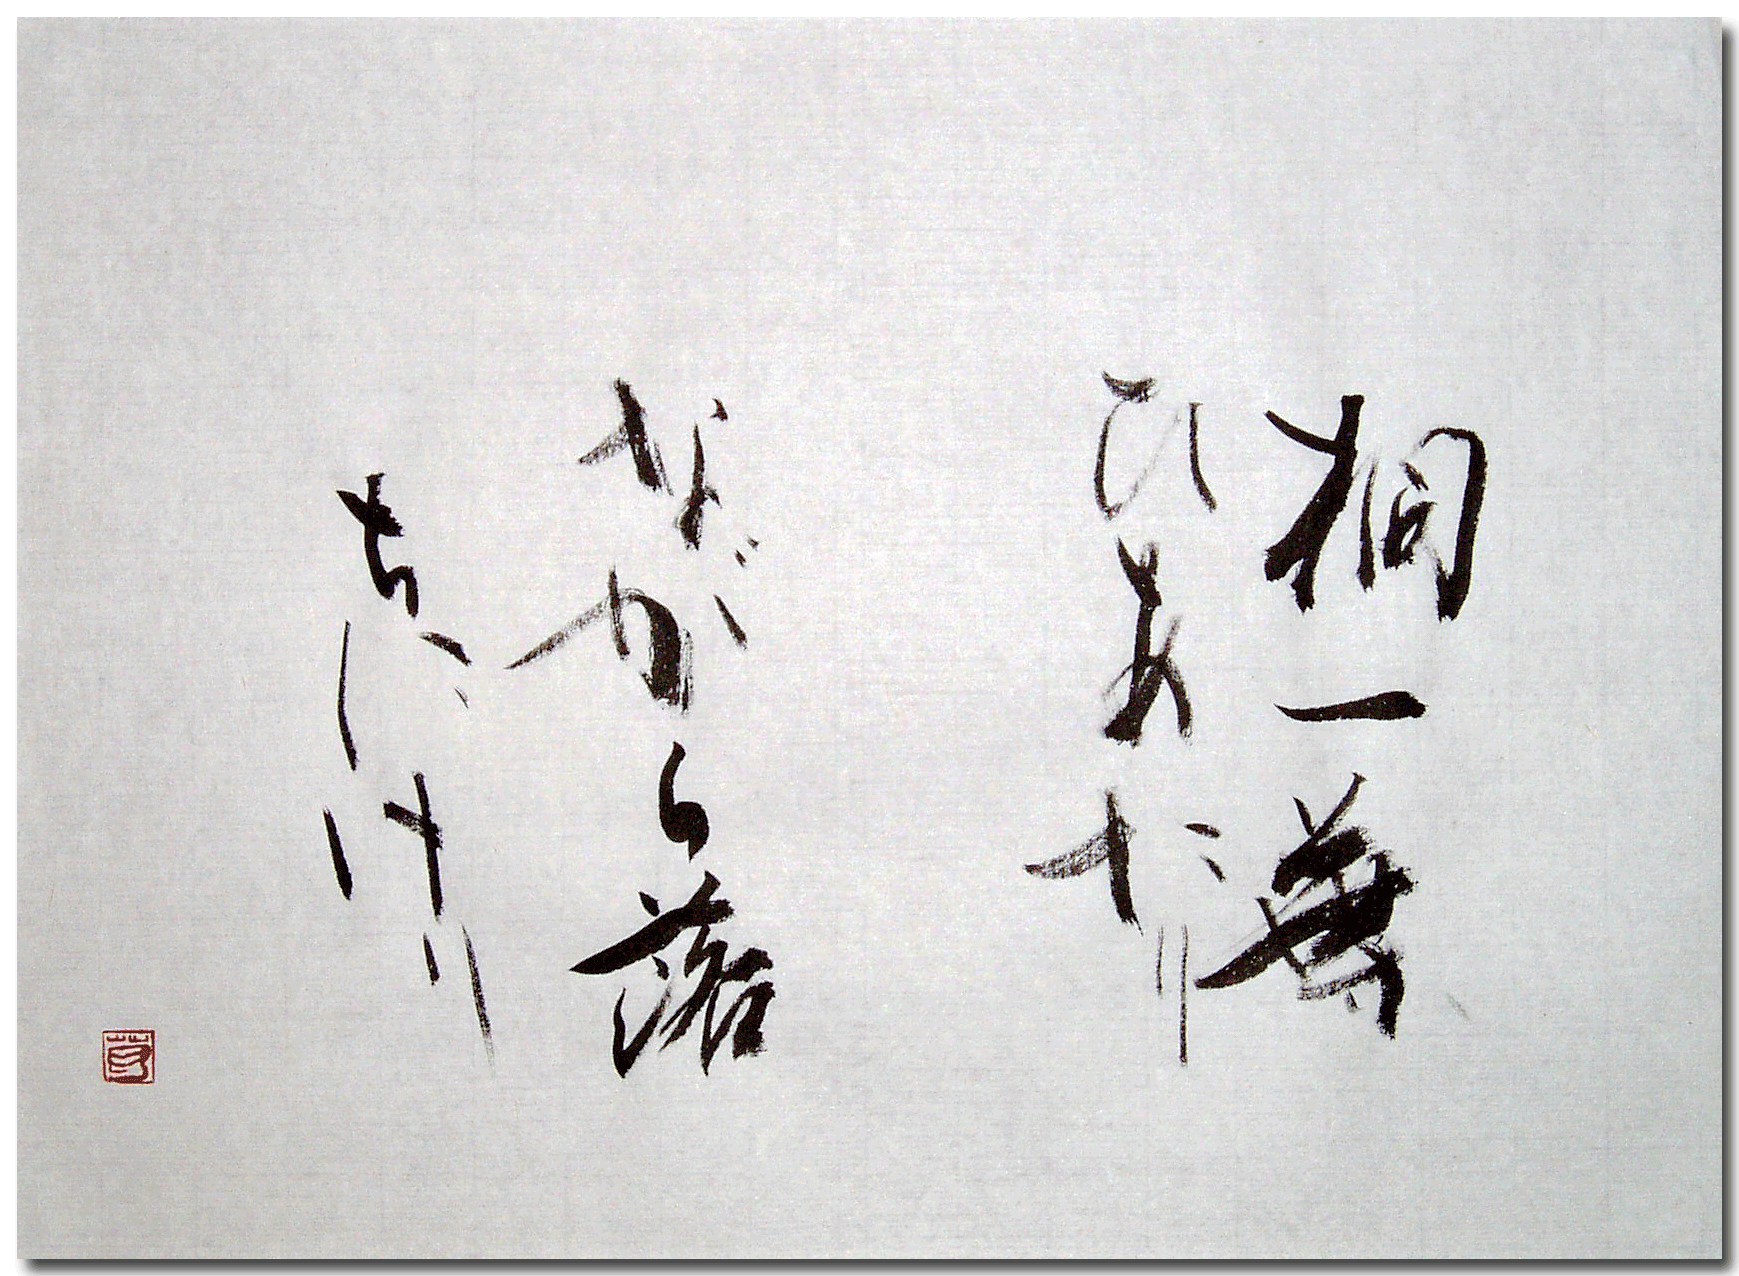 桐一葉
ひあたり
ながら落
ちにけり